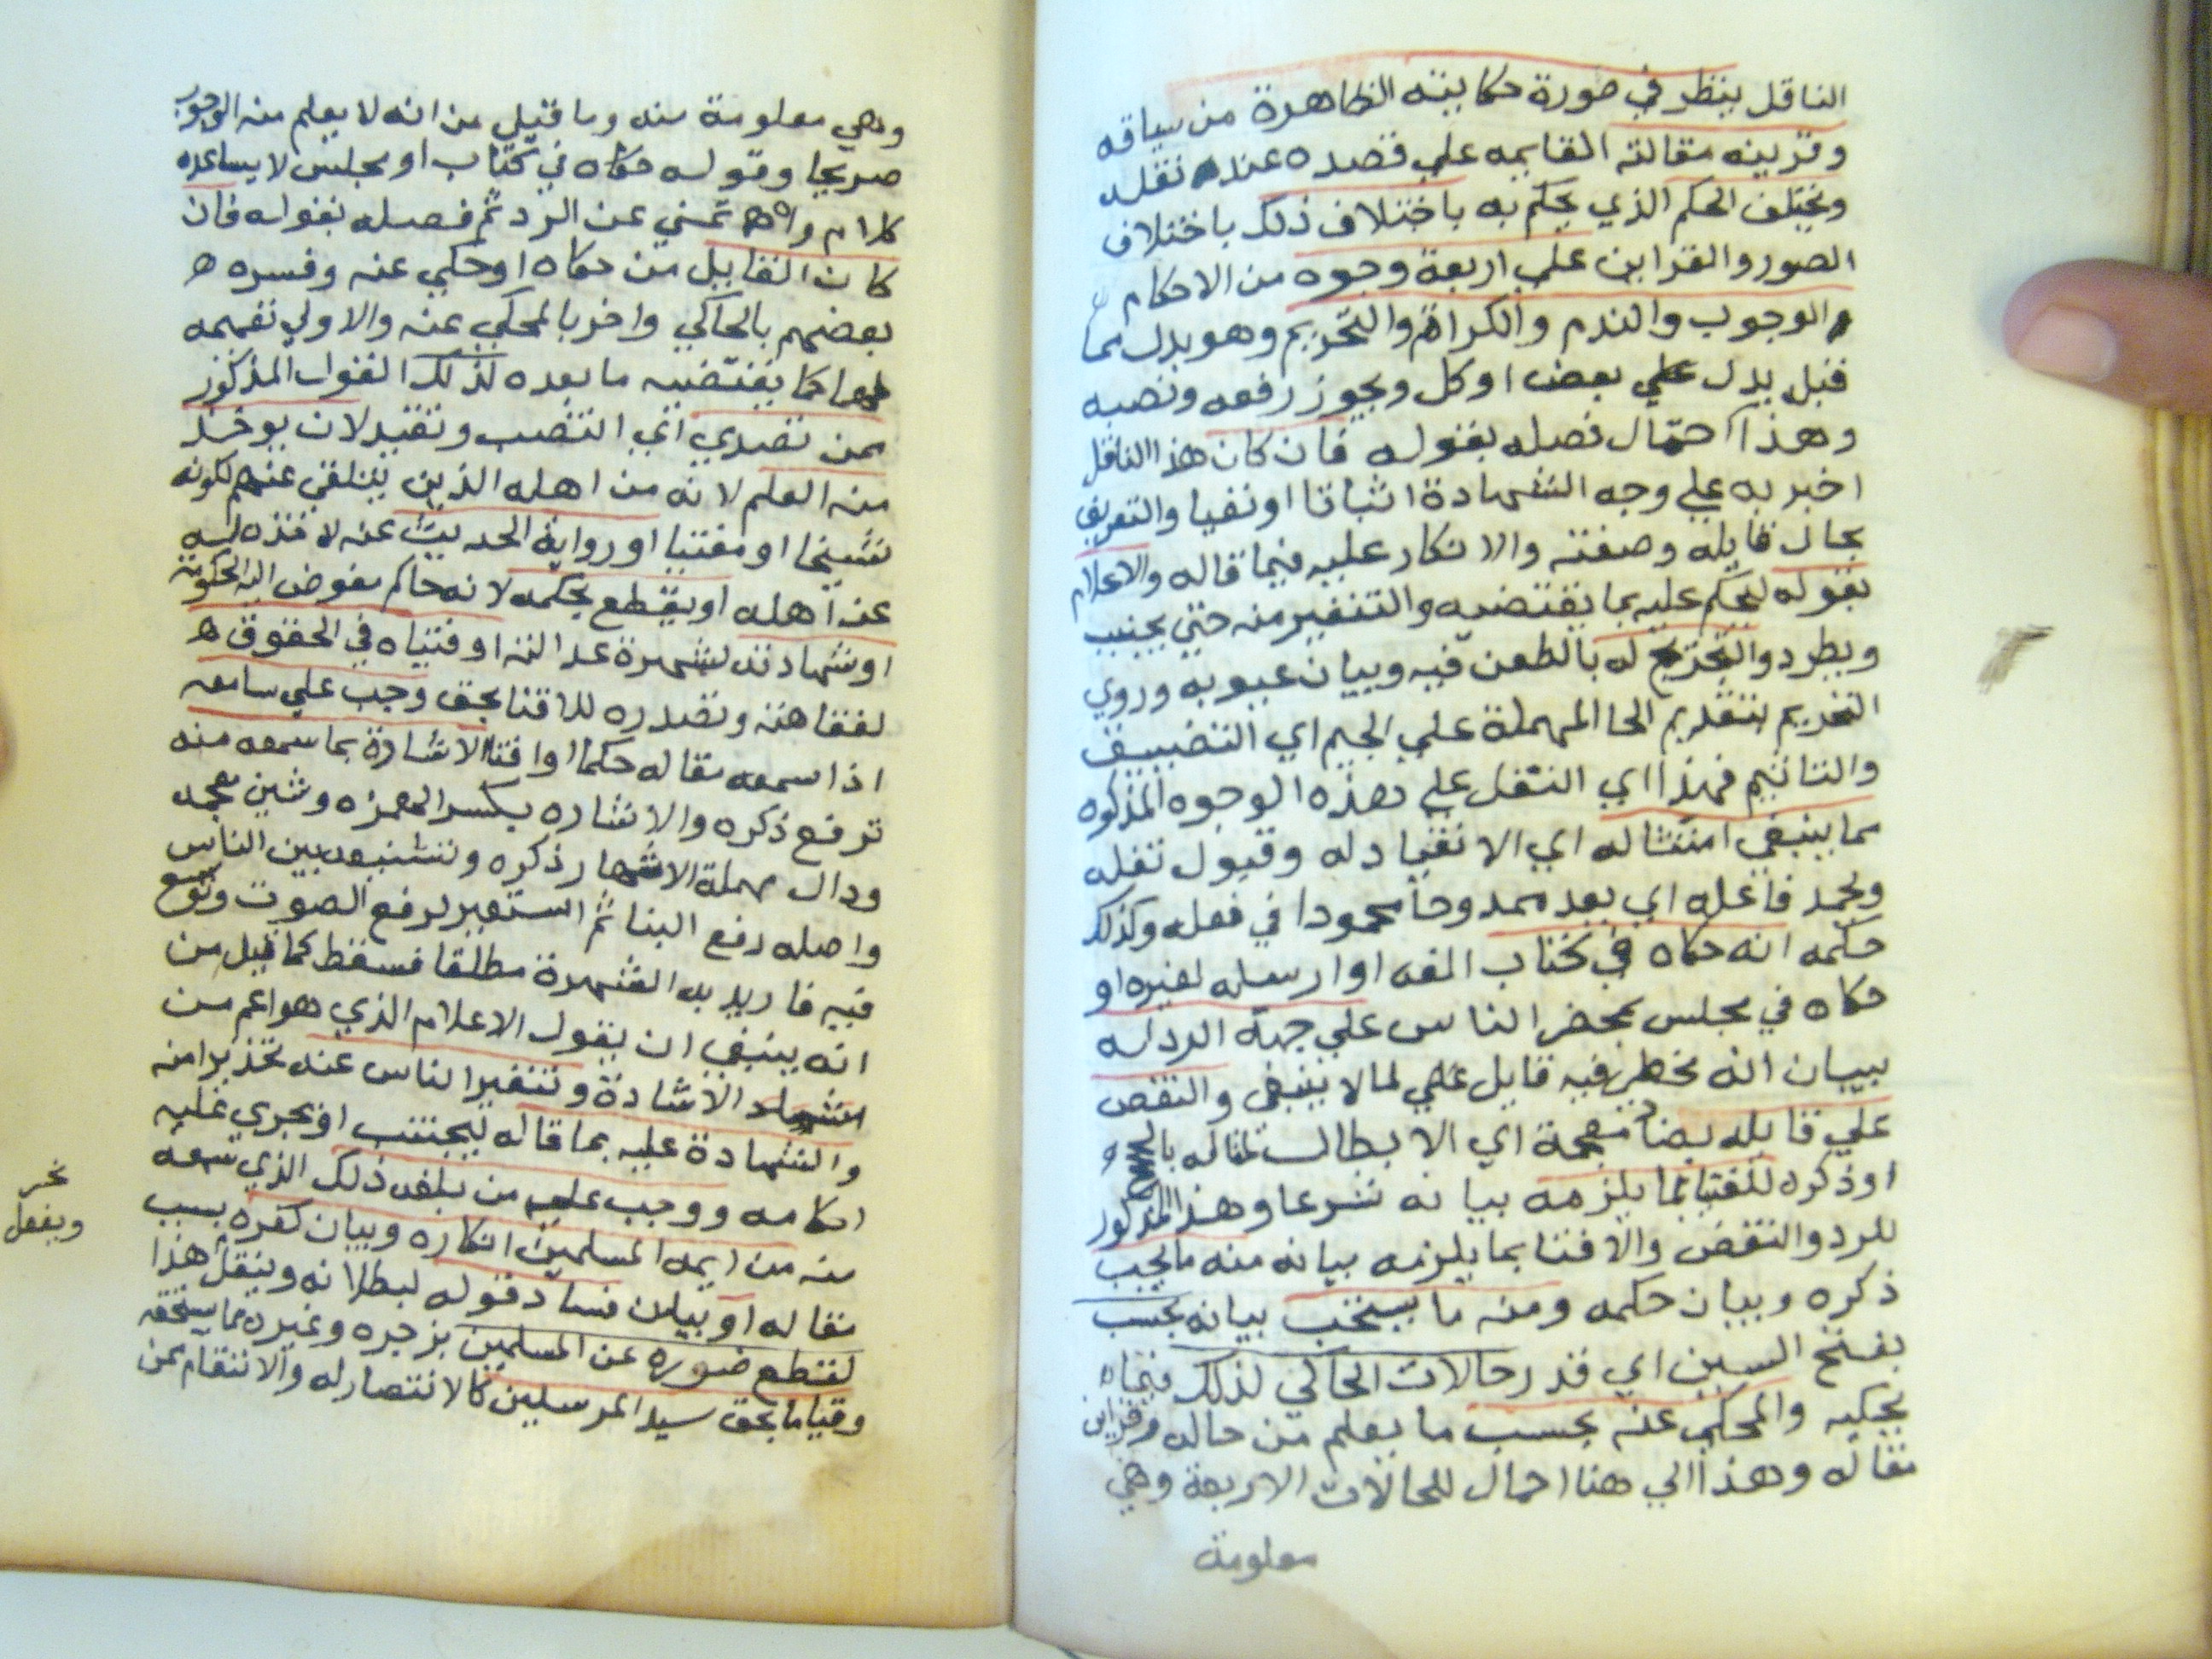 الناقل ينظر في صورة حكايته الظاهرة من سياقه
وقرينه مقالته القايمه علي قصده عند نقله
ويختلف الحكم الذي يحكم به باختلاف ذلك باختلاف
الصور والقراين علي اربعة وجوه من الاحكام
الوجوب والندم والكراهة والتحريم وهو بدل مما
قبل بدل علي بعض او كل ويجوز رفعه ونصبه
وهذا احتمال فصله بقوله فان كان هذا الناقل
اخبر به علي وجه الشهادة اثباتا او نفيا والتعريف
بحال قايله وصفته والانكار عليه فيما قاله والاعلام
بقوله ليحكم عليه بما يقتضيه والتنفير منه حتي يجنب
ويطرد والتجريح له بالطعن فيه وبيان عيوبه وروي
التحريم بتقديم الحا المهملة علي الجيم اي التضييق
والتاثيم فهذا اي النقل علي هذه الوجوه المذكوره
مما ينبغي امتثاله اي الانقياد له وقبول نقله
ويحمد فاعله اي يعد ممدوحا محمودا في فعله وكذلك
حكمه انه حكاه في كتاب الفه او ارسله لغيره او
حكاه في مجلس بمحضر الناس علي جهة الرد له
ببيان انه مخطي فيه قايل علي لما لا ينبغي والنقض
علي قايله بضاد معجمة اي الابطال لمقاله
او ذكره للفتيا بما يلزمه بيانه شرعا وهذا المذكور
للرد والنقض والافتا بما يلزمه بيانه منه ما يجب
ذكره وبيان حكمه ومنه ما يستحب بيانه بحسب
بفتح السين اي قدر حالات الحاكي لذلك فيما
يحكيه والمحكي عنه بحسب ما يعلم من حاله وقراين
مقاله وهذا الي هنا اجمال للحالات الاربعة وهي
معلومة
وهي معلومة منه وما قيل من انه لا يعلم منه الوجوب
صريحا وقوله حكاه في كتاب او مجلس لا يساعده
كلام واه تمني عن الرد ثم فصله بقوله فان
كان القايل من حكاه او حكي عنه وفسره
بعضهم بالحاكي واخر بالمحكي عنه والاولي تعميمه
لهما كما يقتضيه ما بعده لذلك القول المذكور
ممن تصدي اي انتصب وتقيد لان يوخذ
منه العلم لانه من اهله الذين يتلقي عنهم لكونه
شيخا او مفتيا او رواية الحديث عنه لاخذه له
عن اهله او يقطع بحكمه لانه حاكم مفوض اليه الحكومة
او شهادته لشهرة عدالته او فتياه في الحقوق
لفقاهته وتصدره للافتا بحق وجب علي سامعه
اذا سمعه مقاله حكما او افتا الاشادة بما سمعه منه
ترفع ذكره والاشاده بكسر الهمزه وشين معجمه
ودال مهملة الاشهار ذكره وتشنيعه بين الناس
واصله رفع البنا ثم استعير لرفع الصوت وتوسع
فيه فاريد به الشهرة مطلقا فسقط كما قيل من
انه ينبغي ان يقول الاعلام الذي هو اعم من
الاشادة وتنفير الناس عنه تحذيرا منه
والشهادة عليه بما قاله ليجتنب او يجري عليه
احكامه ووجب علي من بلغه ذلك الذي سمعه
منه من ايمه المسلمين انكاره وبيان كفره بسبب
مقاله او بيان فساد قوله لبطلانه وينقل هذا
لقطع ضرره عن المسلمين بزجره وغيره مما يستحقه
وقياما بحق سيد المرسلين كالانتصار له والانتقام ممن